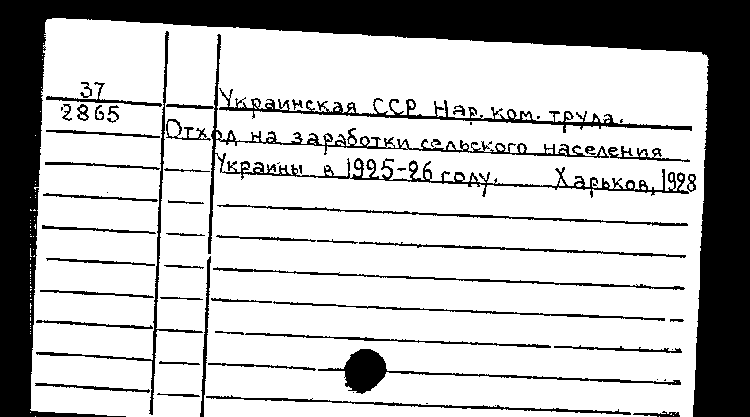 37
2865
Украинская ССР. Нар. ком. труда.
Отход на заработки сельского населения
Украины в 1925-26 году. Харьков, 1928